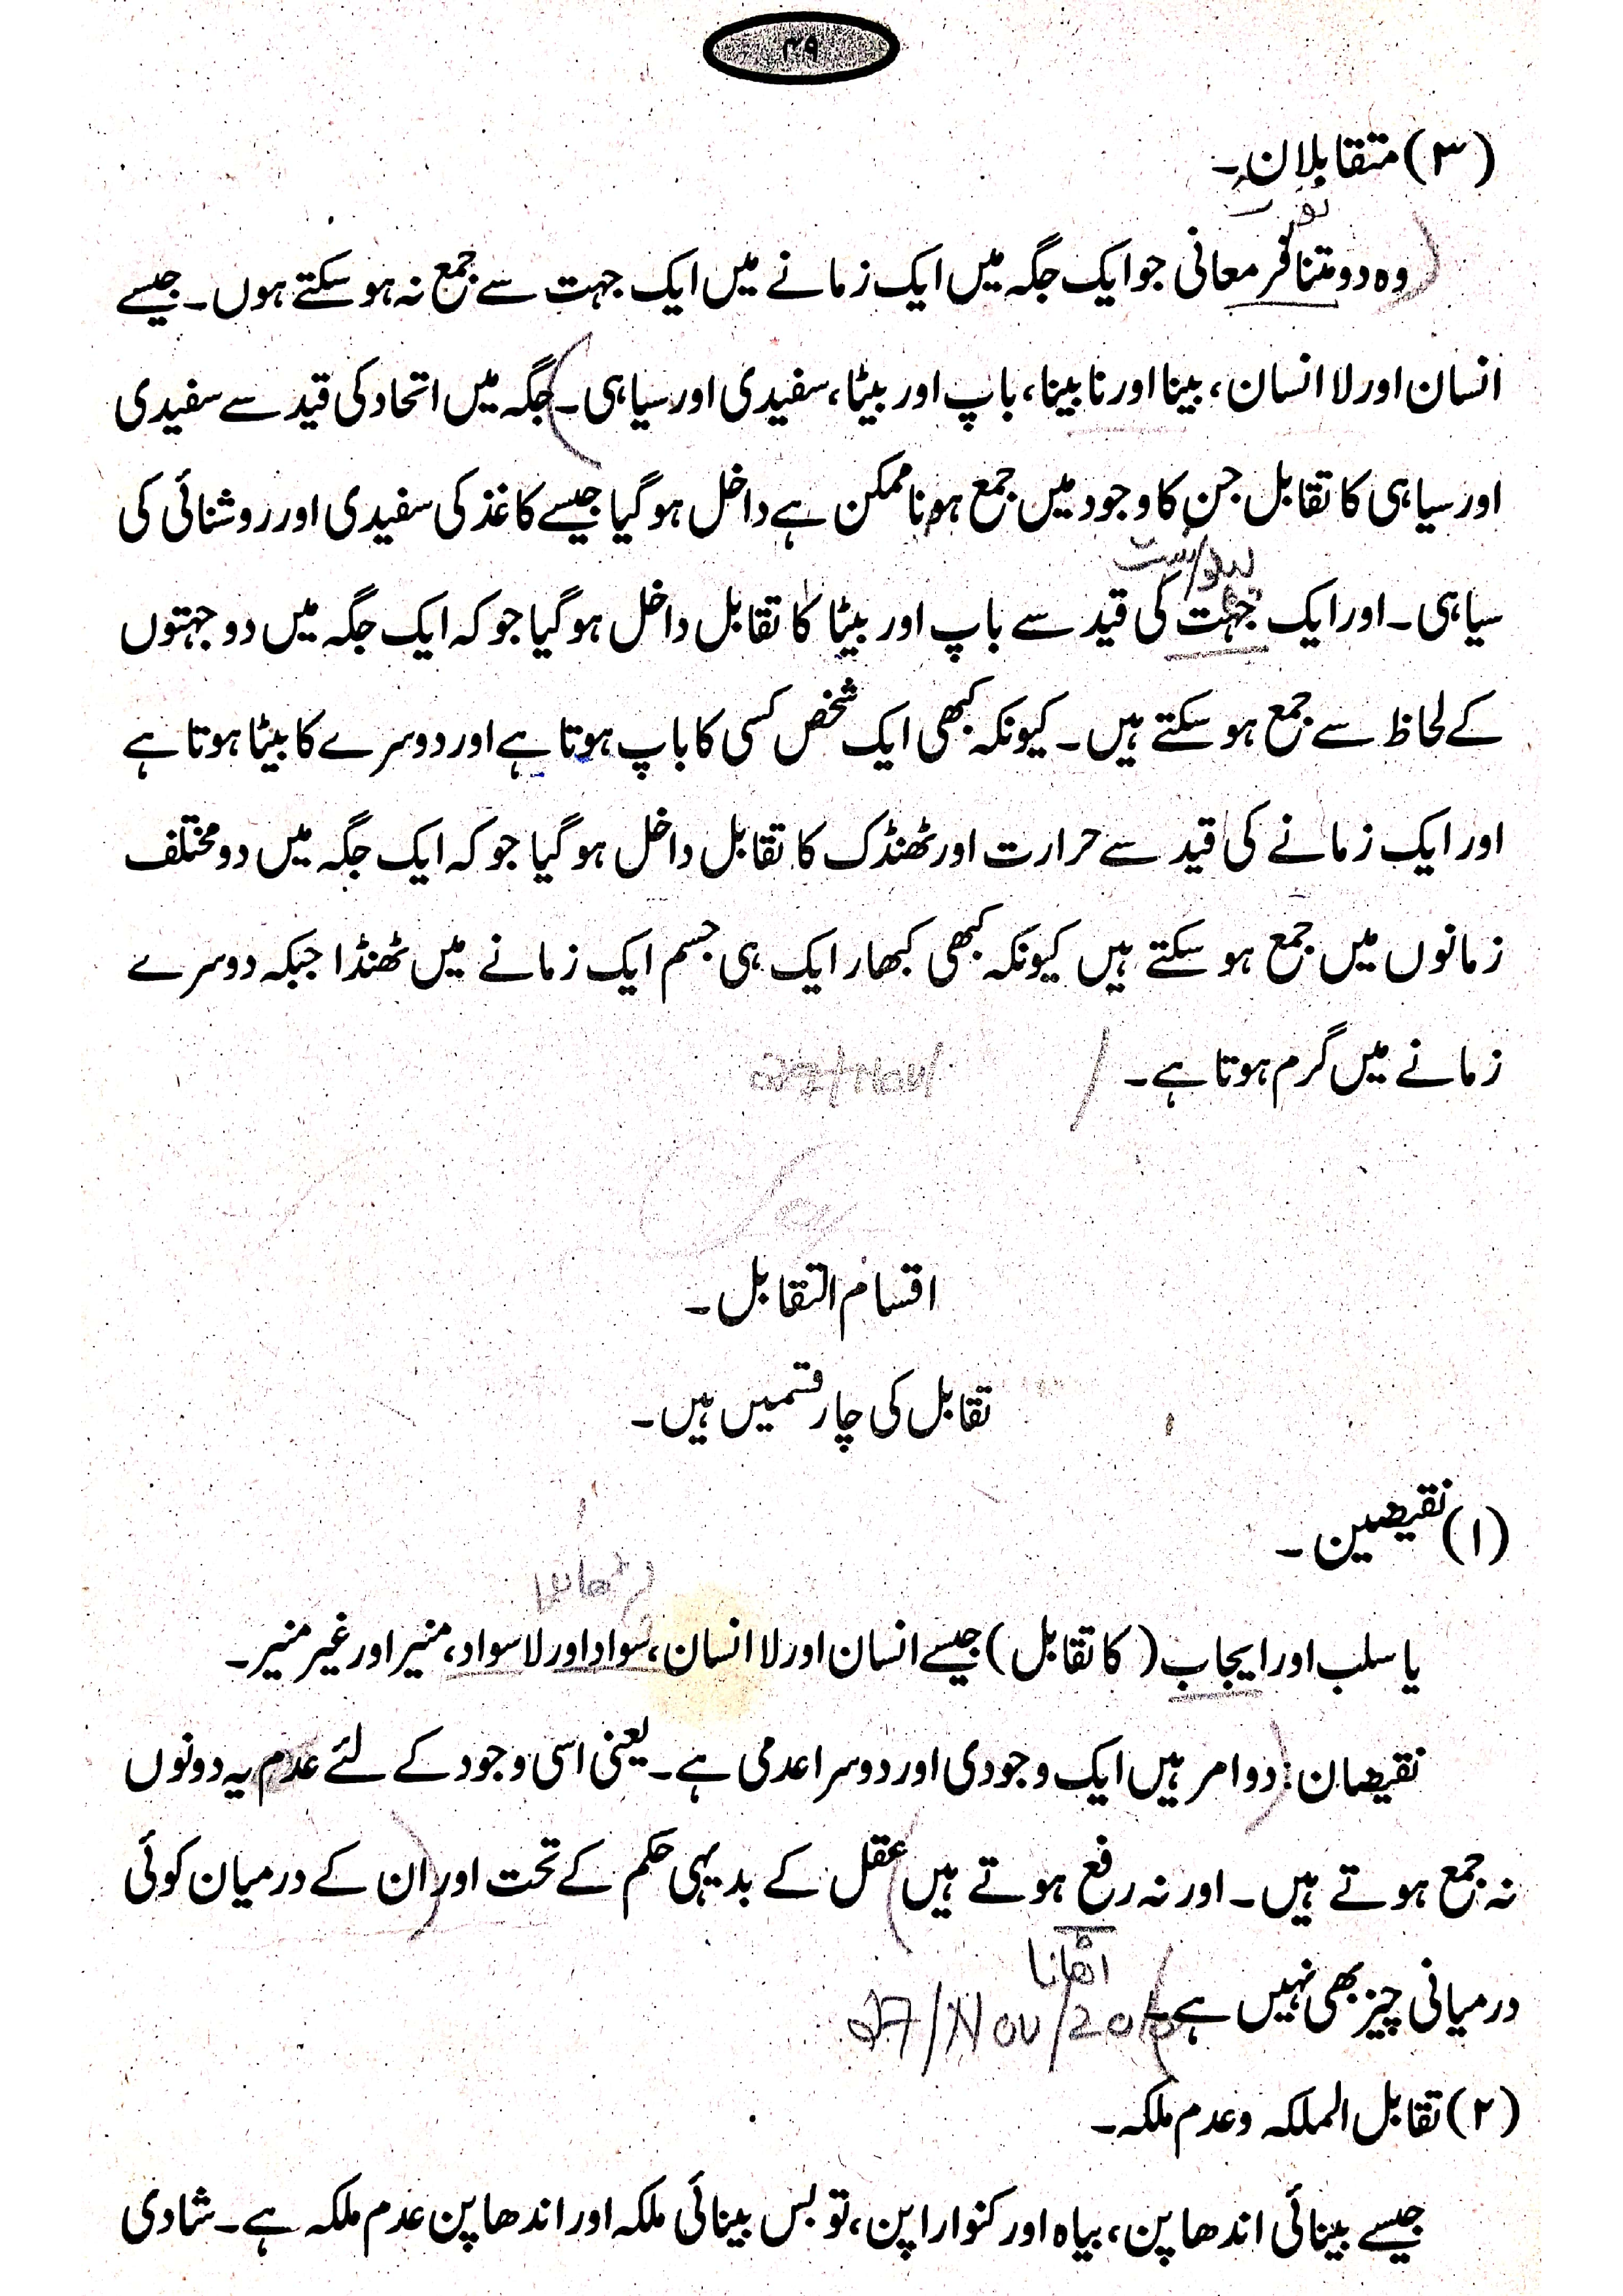 ۴۹
(۳) متقابلان۔
وہ دو متنافر معانی جو ایک جگہ میں ایک زمانے میں ایک جہت سے جمع نہ ہو سکتے ہوں۔ جیسے
انسان اور لا انسان، بینا اور نابینا، باپ اور بیٹا، سفیدی اور سیاہی۔ جگہ میں اتحاد کی قید سے سفیدی
اور سیاہی کا تقابل جن کا وجود میں جمع ہونا ممکن ہے داخل ہو گیا جیسے کاغذ کی سفیدی اور روشنائی کی
سیاہی۔ اور ایک جہت کی قید سے باپ اور بیٹا کا تقابل داخل ہو گیا جو کہ ایک جگہ میں دو جہتوں
کے لحاظ سے جمع ہو سکتے ہیں۔ کیونکہ کبھی ایک شخص کسی کا باپ ہوتا ہے اور دوسرے کا بیٹا ہوتا ہے
اور ایک زمانے کی قید سے حرارت اور ٹھنڈک کا تقابل داخل ہو گیا جو کہ ایک جگہ میں دو مختلف
زمانوں میں جمع ہو سکتے ہیں کیونکہ کبھی کبھار ایک ہی جسم ایک زمانے میں ٹھنڈا جبکہ دوسرے
زمانے میں گرم ہوتا ہے۔
اقسام التقابل۔
تقابل کی چار قسمیں ہیں۔
(۱) نقیضین۔
یا سلب اور ایجاب (کا تقابل) جیسے انسان اور لا انسان، سواد اور لا سواد، منیر اور غیر منیر۔
نقیضان: دو امر ہیں ایک وجودی اور دوسرا عدمی ہے۔ یعنی اسی وجود کے لئے عدم یہ دونوں
نہ جمع ہوتے ہیں۔ اور نہ رفع ہوتے ہیں عقل کے بدیہی حکم کے تحت اور ان کے درمیان کوئی
اٹھانا
درمیانی چیز بھی نہیں ہے۔
27/Nov/
(۲) تقابل الملکہ وعدم ملکہ۔
جیسے بینائی اندھا پن، بیاہ اور کنوارا پن، تو بس بینائی ملکہ اور اندھا پن عدم ملکہ ہے۔ شادی